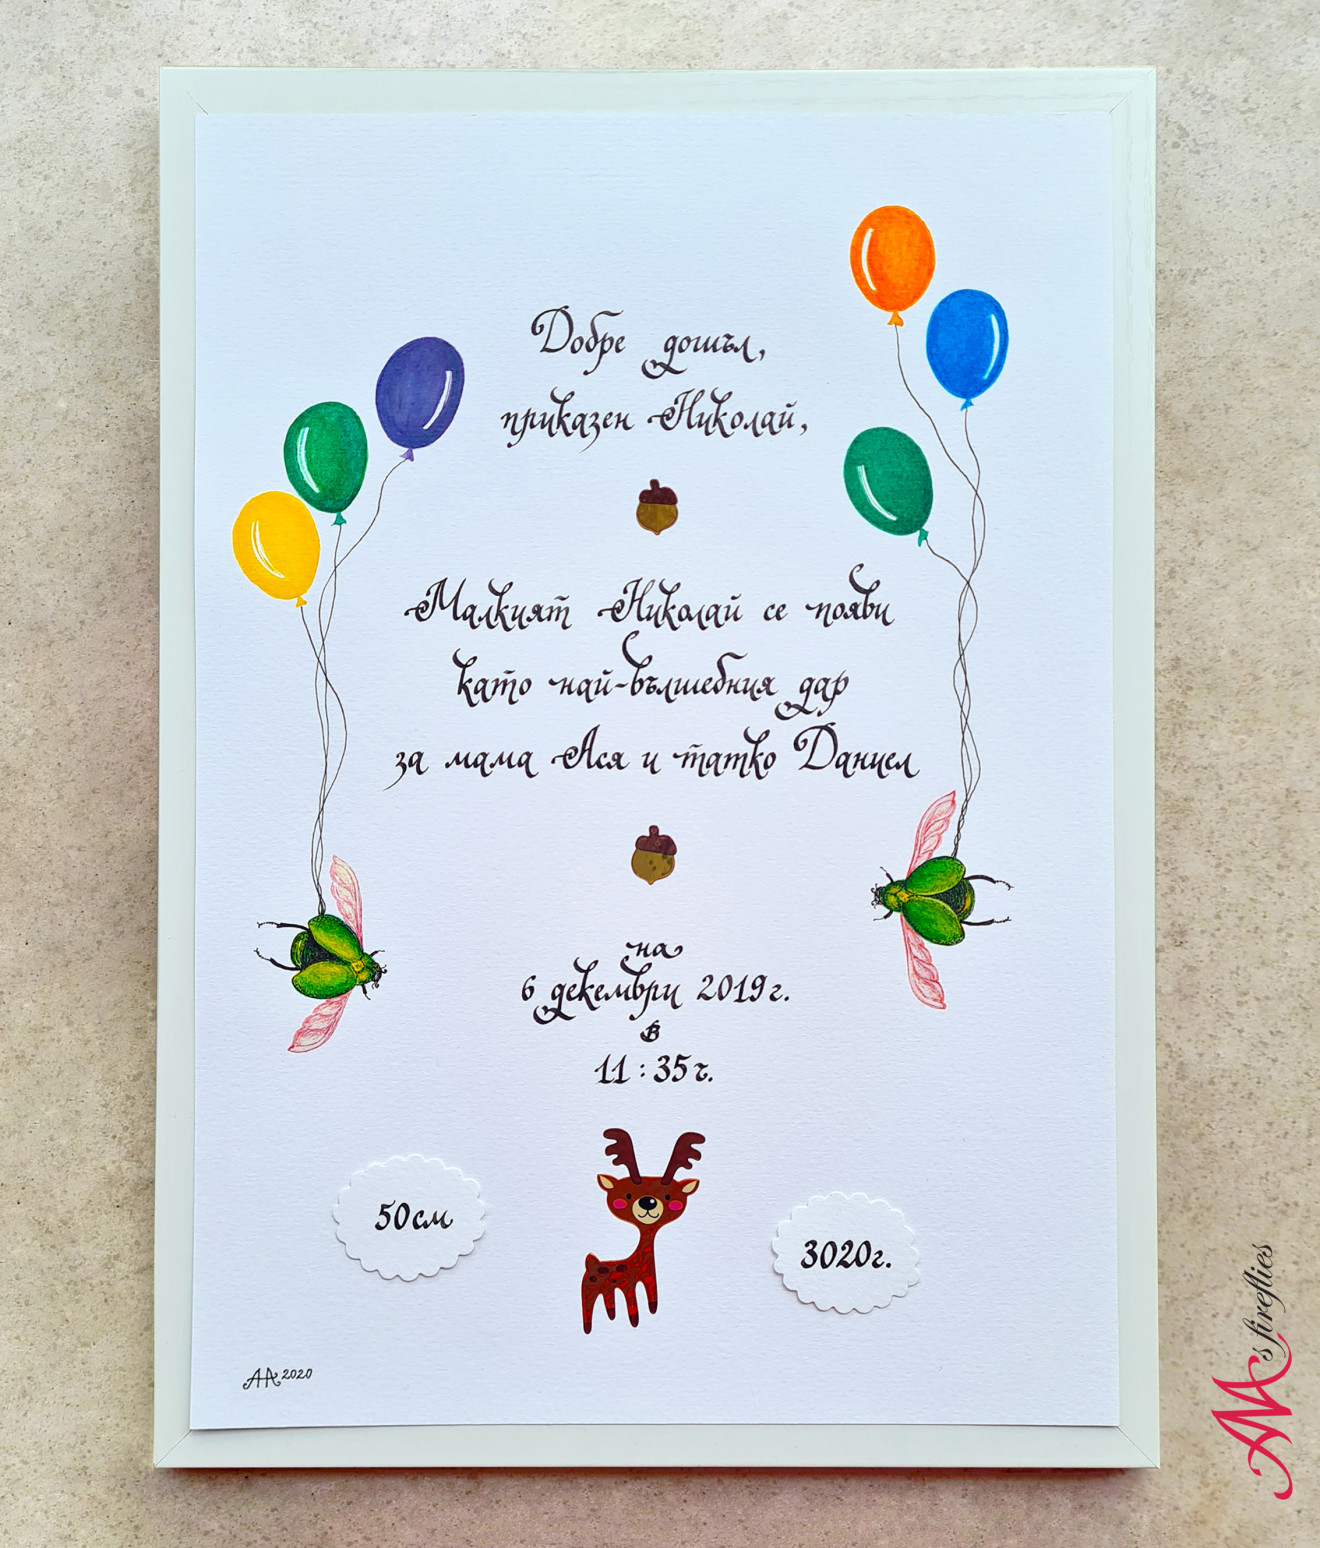 Добре дошъл,
приказен Николай,
Малкият Николай се появи
като най-вълшебния дар
за мама Ася и татко Даниел
на
6 декември 2019г.
в
11:35ч.
50см
3020г.
АА 2020
s fireflies